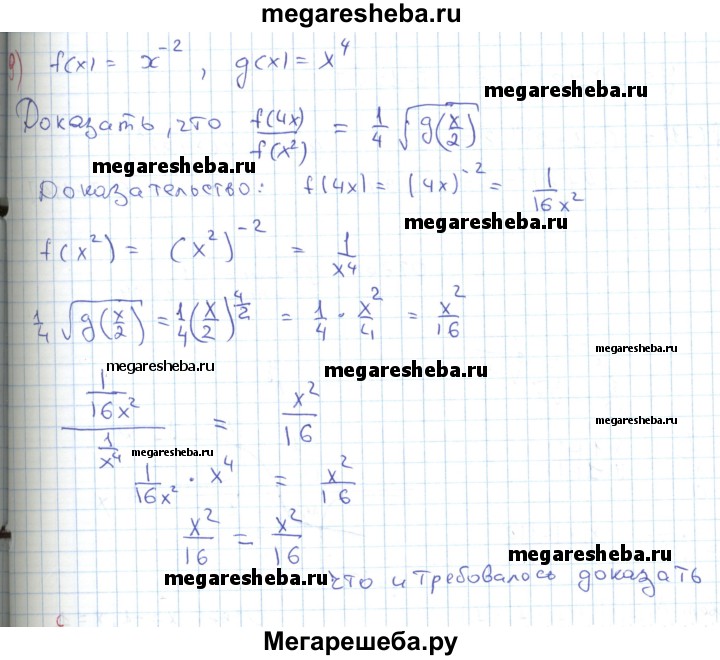 megaresheba.ru
9) f(x) = x^-2, g(x) = x^4
megaresheba.ru
Доказать, что f(4x)/f(x^2) = 1/4 √g(x/2)
megaresheba.ru
Доказательство: f(4x) = (4x)^-2 = 1/16x^2
megaresheba.ru
f(x^2) = (x^2)^-2 = 1/x^4
1/4 √g(x/2) = 1/4 (x/2)^4/2 = 1/4 · x^2/4 = x^2/16
megaresheba.ru
megaresheba.ru
megaresheba.ru
1/16x^2 / 1/x^4 = x^2/16
megaresheba.ru
megaresheba.ru
1/16x^2 · x^4 = x^2/16
x^2/16 = x^2/16
megaresheba.ru
megaresheba.ru
что и требовалось доказать
Мегарешеба.ру